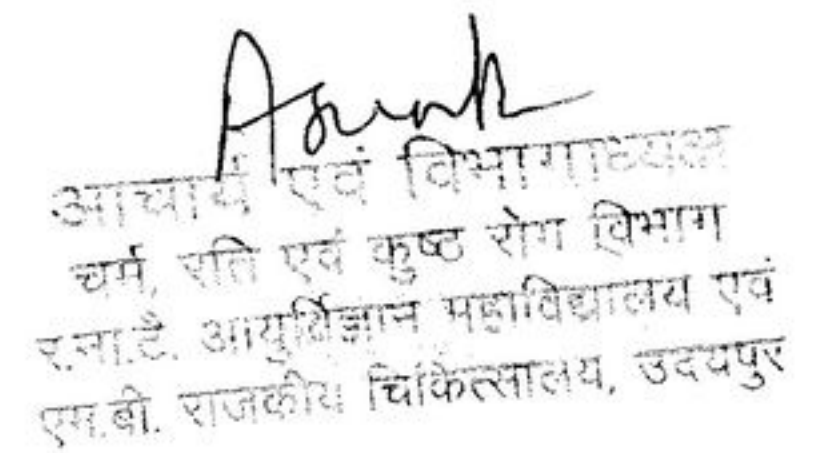 आचार्य एवं विभागाध्यक्ष
चर्म, रति एवं कुष्ठ रोग विभाग
र.ना.टै. आयुर्विज्ञान महाविद्यालय एवं
एम.बी. राजकीय चिकित्सालय, उदयपुर